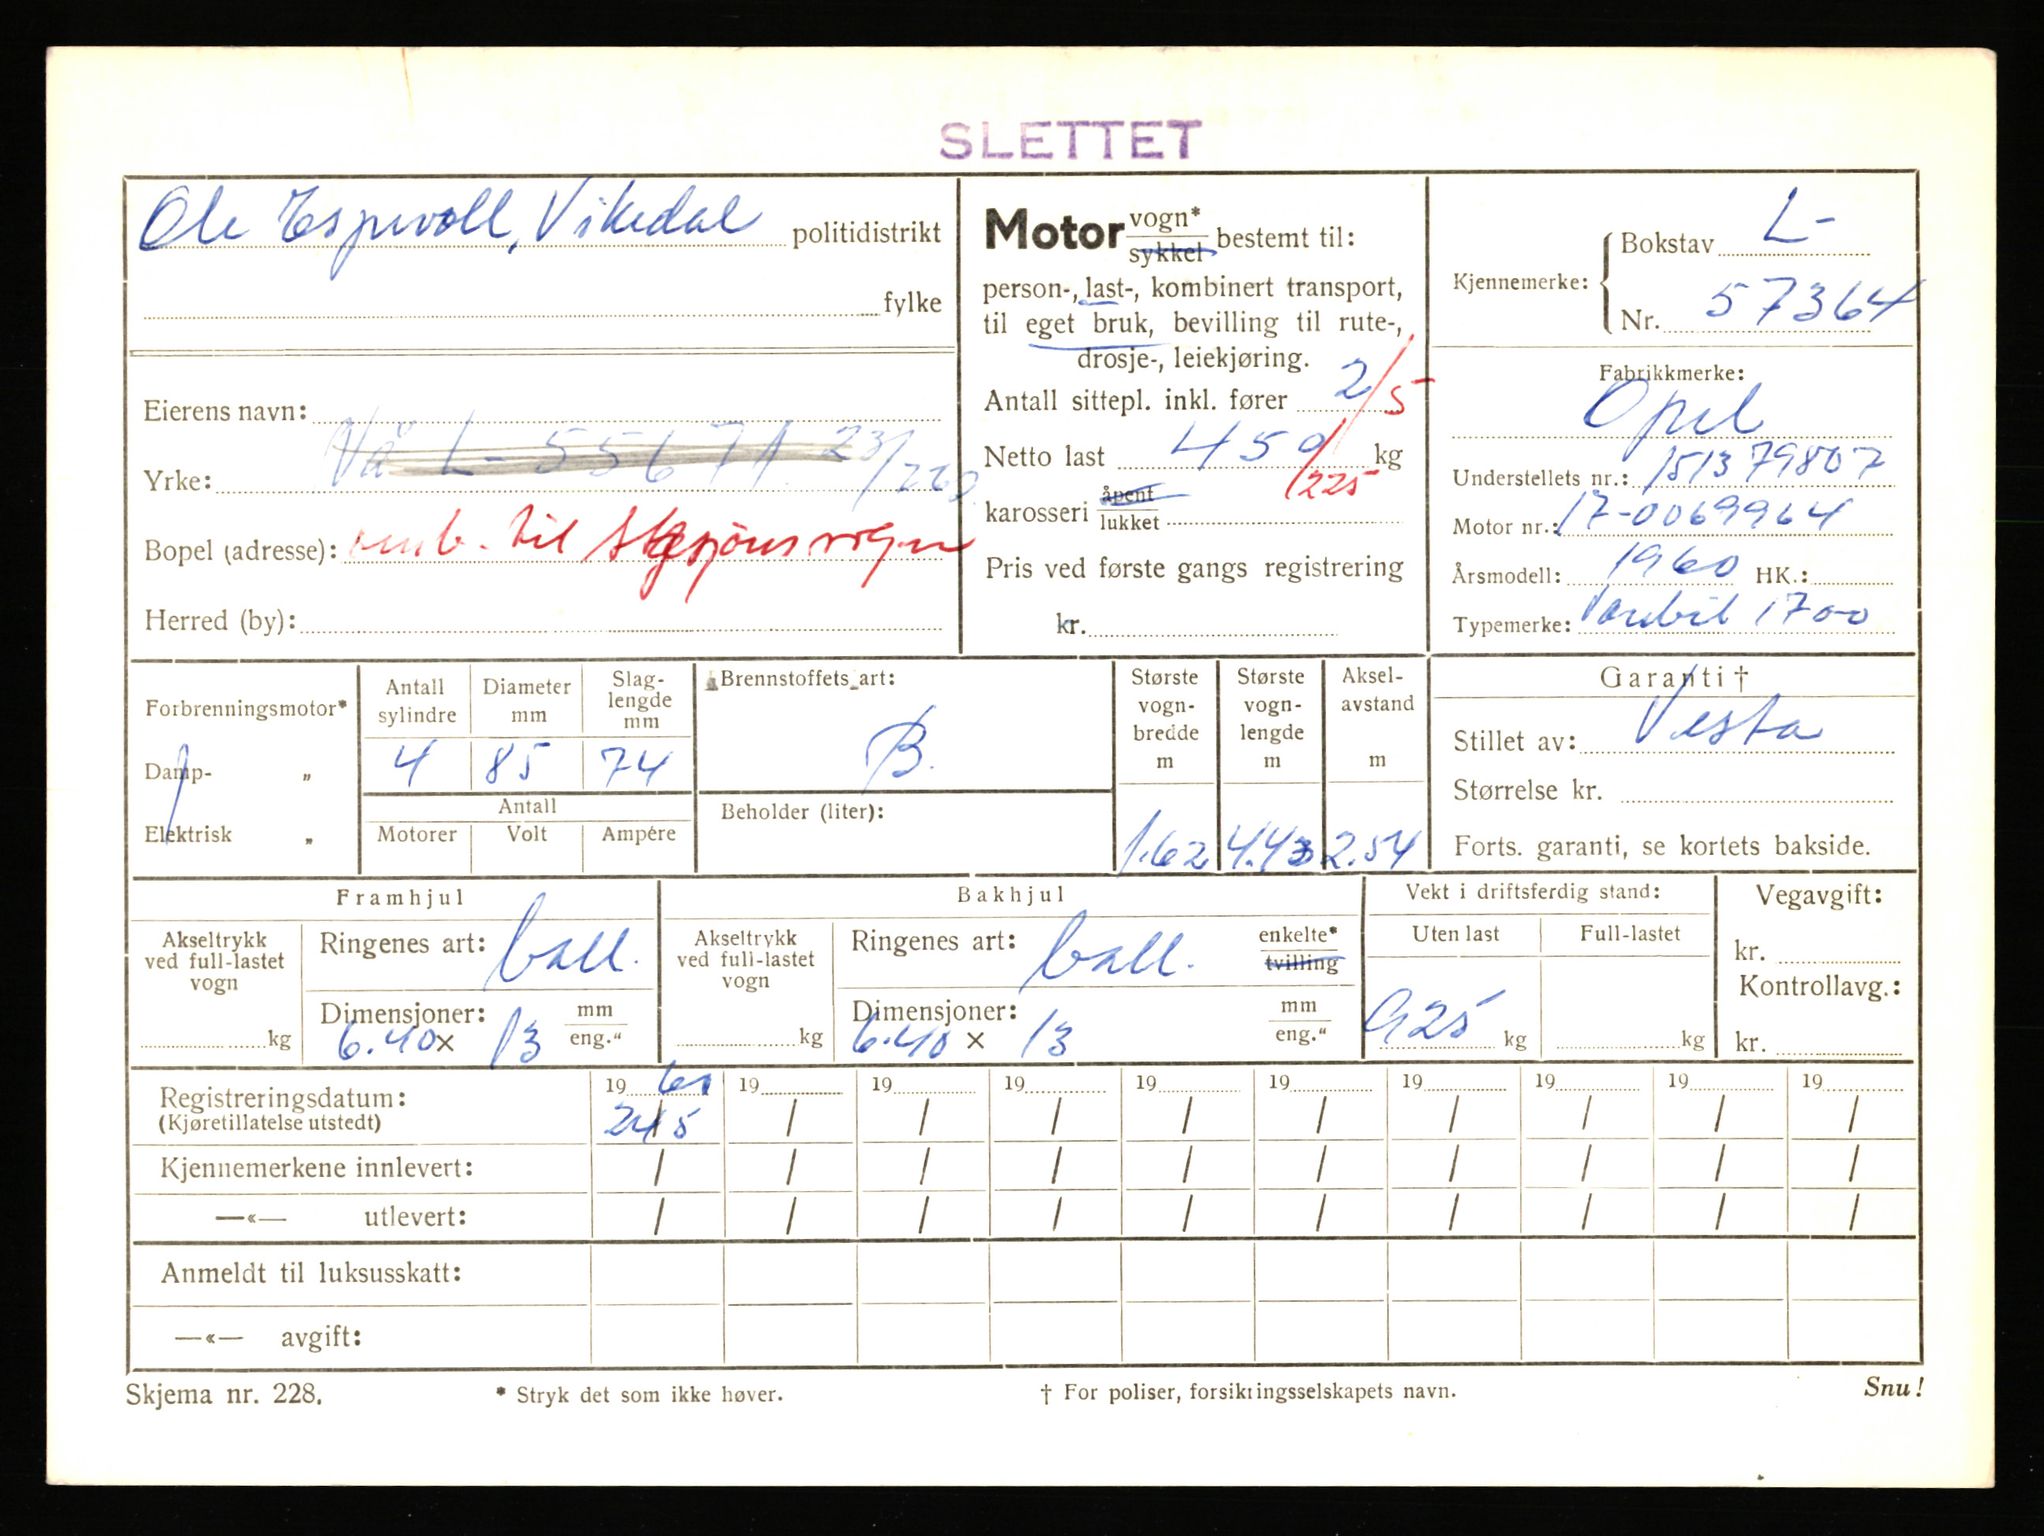 SLETTET
Ole Espevoll, Vikedal politidistrikt
fylke
Eierens navn:
Vå L-55671 23/2 60
Yrke:
Bopel (adresse): omb. til stasjonsvogn
Herred (by):
Motor vogn* sykkel bestemt til:
person-, last-, kombinert transport,
til eget bruk, bevilling til rute-,
drosje-, leiekjøring.
Antall sittepl. inkl. fører 2/5
Netto last 450/225 kg
karosseri åpent lukket
Pris ved første gangs registrering
kr.
Kjennemerke: Bokstav L-
Nr. 57364
Fabrikkmerke:
Opel
Understellets nr.: 151379807
Motor nr.: 17-0069964
Årsmodell: 1960 HK.:
Typemerke: Varebil 1700
Forbrenningsmotor*
Damp- „
Elektrisk „
Antall sylindre Diameter mm Slag-lengde mm
4 85 74
Antall
Motorer Volt Ampére
Brennstoffets art:
B.
Beholder (liter):
Største vogn-bredde m Største vogn-lengde m Aksel-avstand m
1.62 4.43 2.54
Garanti †
Stillet av: Vesta
Størrelse kr.
Forts. garanti, se kortets bakside.
Framhjul
Akseltrykk ved full-lastet vogn
kg
Ringenes art: ball.
Dimensjoner: mm
6.40 x 13 eng.“
Bakhjul
Akseltrykk ved full-lastet vogn
kg
Ringenes art: ball. enkelte* tvilling
Dimensjoner: mm
6.40 x 13 eng.“
Vekt i driftsferdig stand:
Uten last Full-lastet
925 kg kg
Vegavgift:
kr.
Kontrollavg.:
kr.
Registreringsdatum: 19 61 19 19 19 19 19 19 19 19 19
(Kjøretillatelse utstedt) 24/5 / / / / / / / / /
Kjennemerkene innlevert: / / / / / / / / / /
—«— utlevert: / / / / / / / / / /
Anmeldt til luksusskatt:
—«— avgift:
Skjema nr. 228. * Stryk det som ikke høver. † For poliser, forsikringsselskapets navn. Snu!